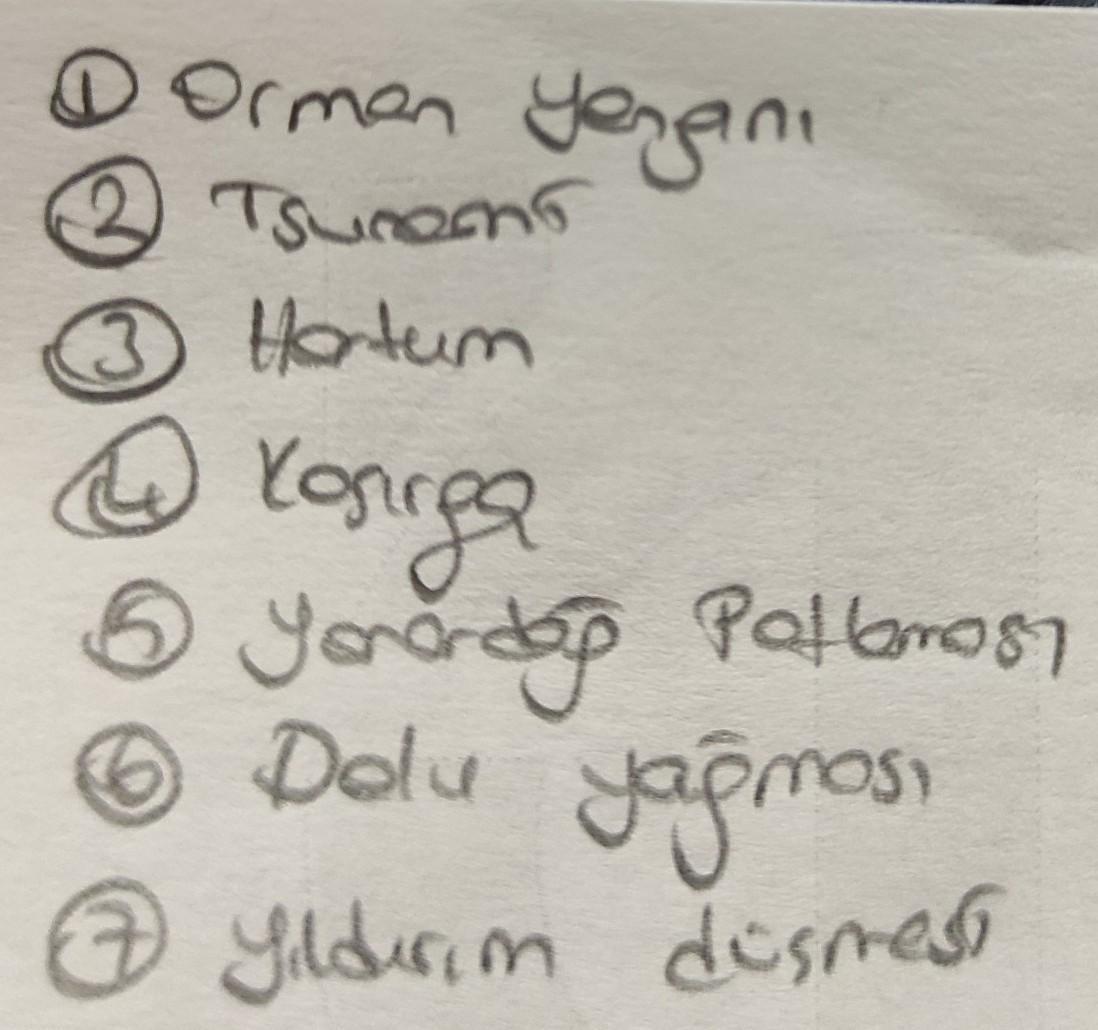 ① Orman yangını
② Tsunami
③ Hortum
④ Kasırga
⑤ Yanardağ Patlaması
⑥ Dolu yağması
⑦ Yıldırım düşmesi